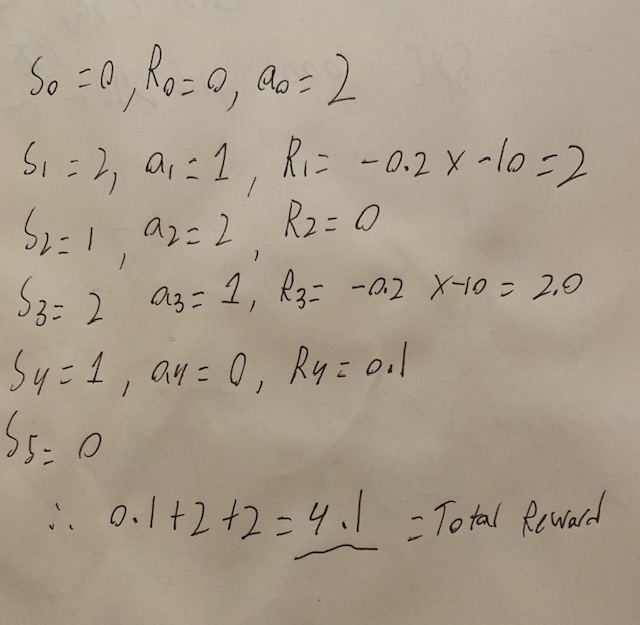 S0 = 0, R0 = 0, a0 = 2
S1 = 2, a1 = 1, R1 = -0.2 x -10 = 2
S2 = 1, a2 = 2, R2 = 0
S3 = 2 a3 = 1, R3 = -0.2 x -10 = 2.0
S4 = 1, a4 = 0, R4 = 0.1
S5 = 0
∴ 0.1 + 2 + 2 = 4.1 = Total Reward